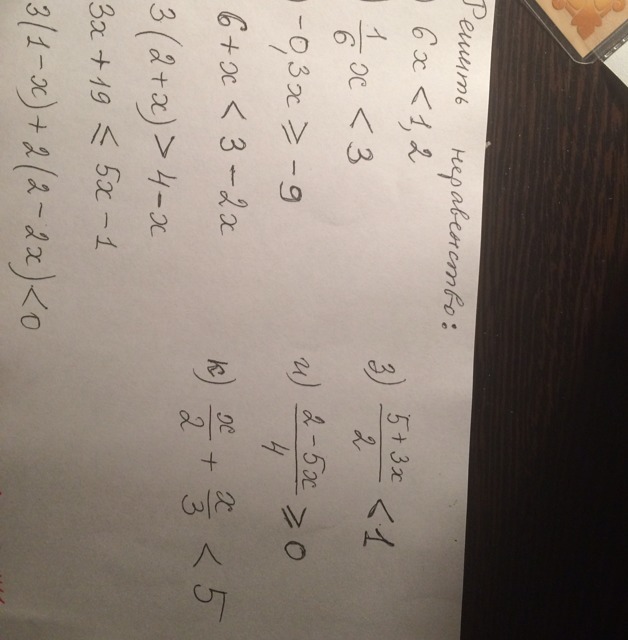 Решить неравенство:
) 6x < 1,2
) 1/6 x < 3
) -0,3x ≥ -9
6 + x < 3 - 2x
3(2+x) > 4-x
3x + 19 ≤ 5x - 1
3(1-x) + 2(2-2x) < 0
з) (5+3x)/2 < 1
и) (2-5x)/4 ≥ 0
к) x/2 + x/3 < 5